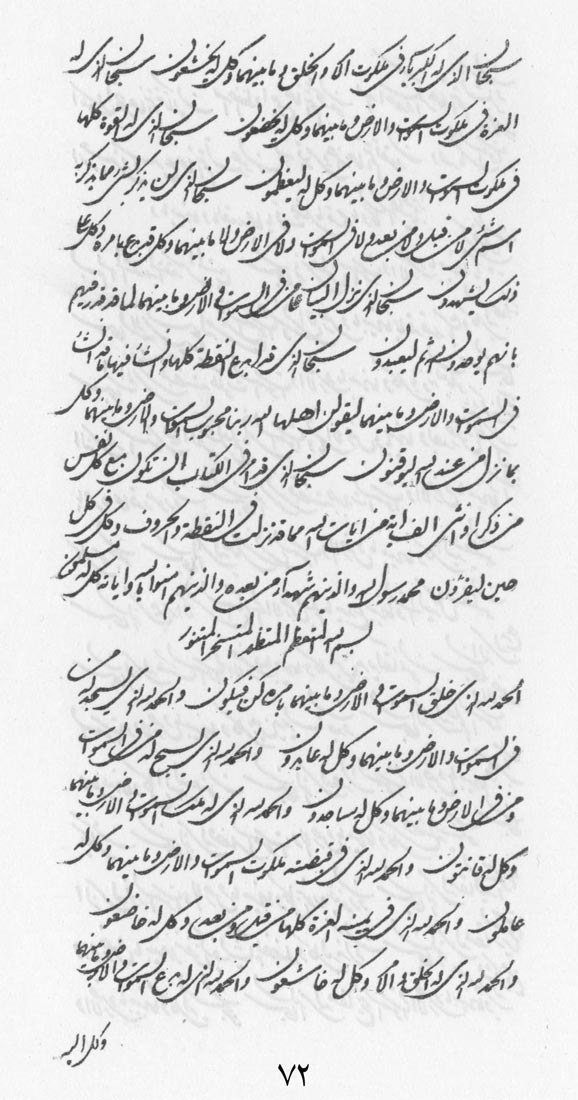 سبحان الذی له الکبریآء فی ملکوت الامر و الخلق و ما بینهما و کل له یخشعون سبحان الذی له
العزة فی ملکوت السموات و الارض و ما بینهما و کل له یخضعون سبحان الذی له القوة کلها
فی ملکوت السموات و الارض و ما بینهما و کل له لیعظمون سبحان الذی لن یذکر بشئ مما یذکر به
اسم شئ لا من قبل و لا من بعد و لا فی السموات و لا فی الارض و لا ما بینهما و کل قد بدع بامره و کل علی
ذلک لیشهدون سبحان الذی نزل البیان علی من فی السموات و الارض و ما بینهما لما قد قدر فیهم
بانهم یوحدون ثم لیعبدون سبحان الذی قد ابدع النقطة کلها و انشأ فیها ما قد انشأ
فی السموات و الارض و ما بینهما لیقولن اهلها الله ربنا محبوب السموات و الارض و ما بینهما و کل
بما نزل من عند الله لیوقنون سبحان الذی قد امر فی الکتاب ان تکون مع کل نفس
من ذکر او انثی الف آیة من آیات الله مما قد نزلت فی النقطة و الحروف و کل فی کل
حین لیقرؤن محمد رسول الله و الذینهم شهدآء من بعده و الذینهم آمنوا بالله و آیاته کل له مسلمون
بسم الله المتعظم المتظهر المتسخر المتنور
الحمد لله الذی خلق السموات و الارض و ما بینهما بامره کن فیکون و الحمد لله الذی یسجد له من
فی السموات و الارض و ما بینهما و کل له عابدون و الحمد لله الذی یسبح له من فی السموات
و من فی الارض و ما بینهما و کل له ساجدون و الحمد لله الذی له ملک السموات و الارض و ما بینهما
و کل له قانتون و الحمد لله الذی فی قبضته ملکوت السموات و الارض و ما بینهما و کل له
عاملون و الحمد لله الذی فی یمینه العزة کلها من قبل و من بعد و کل له خاضعون
و الحمد لله الذی له الخلق و الامر و کل له خاشعون و الحمد لله الذی له بدع السموات و الارض و ما بینهما
و کل الیه
٧٢